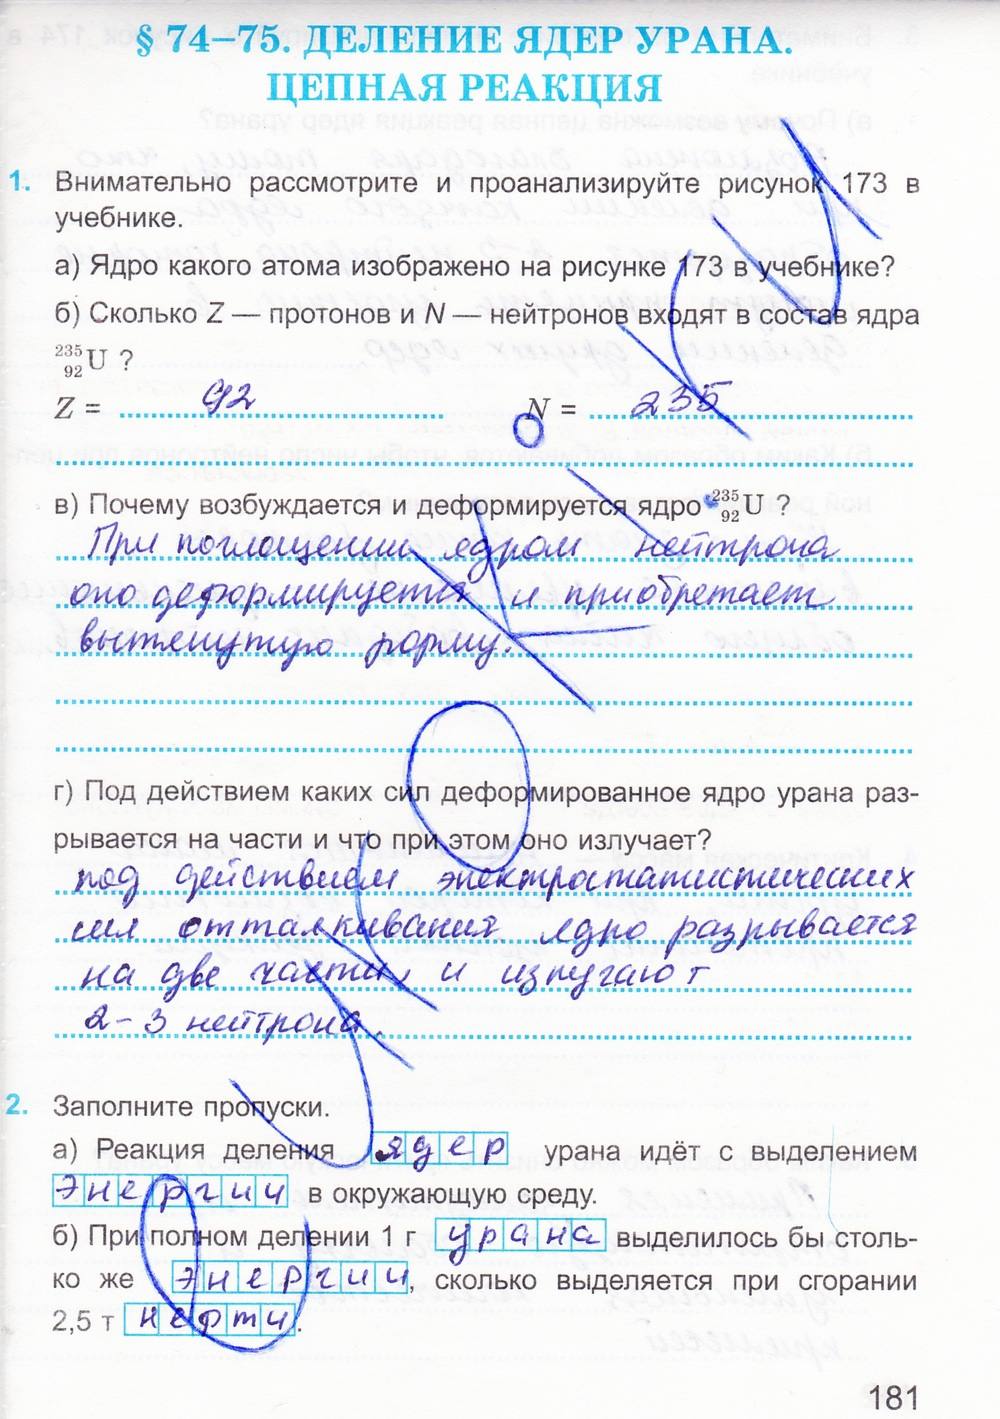 § 74–75. ДЕЛЕНИЕ ЯДЕР УРАНА.
ЦЕПНАЯ РЕАКЦИЯ
1. Внимательно рассмотрите и проанализируйте рисунок 173 в
учебнике.
а) Ядро какого атома изображено на рисунке 173 в учебнике?
б) Сколько Z — протонов и N — нейтронов входят в состав ядра
²³⁵₉₂U ?
Z = 92 N = 235
в) Почему возбуждается и деформируется ядро ²³⁵₉₂U ?
При поглощении ядром нейтрона
оно деформируется и приобретает
вытянутую форму.
г) Под действием каких сил деформированное ядро урана раз-
рывается на части и что при этом оно излучает?
под действием электростатистических
сил отталкивания ядро разрывается
на две части, и излучают
2-3 нейтрона.
2. Заполните пропуски.
а) Реакция деления ядер урана идёт с выделением
энергии в окружающую среду.
б) При полном делении 1 г урана выделилось бы столь-
ко же энергии, сколько выделяется при сгорании
2,5 т нефти.
181